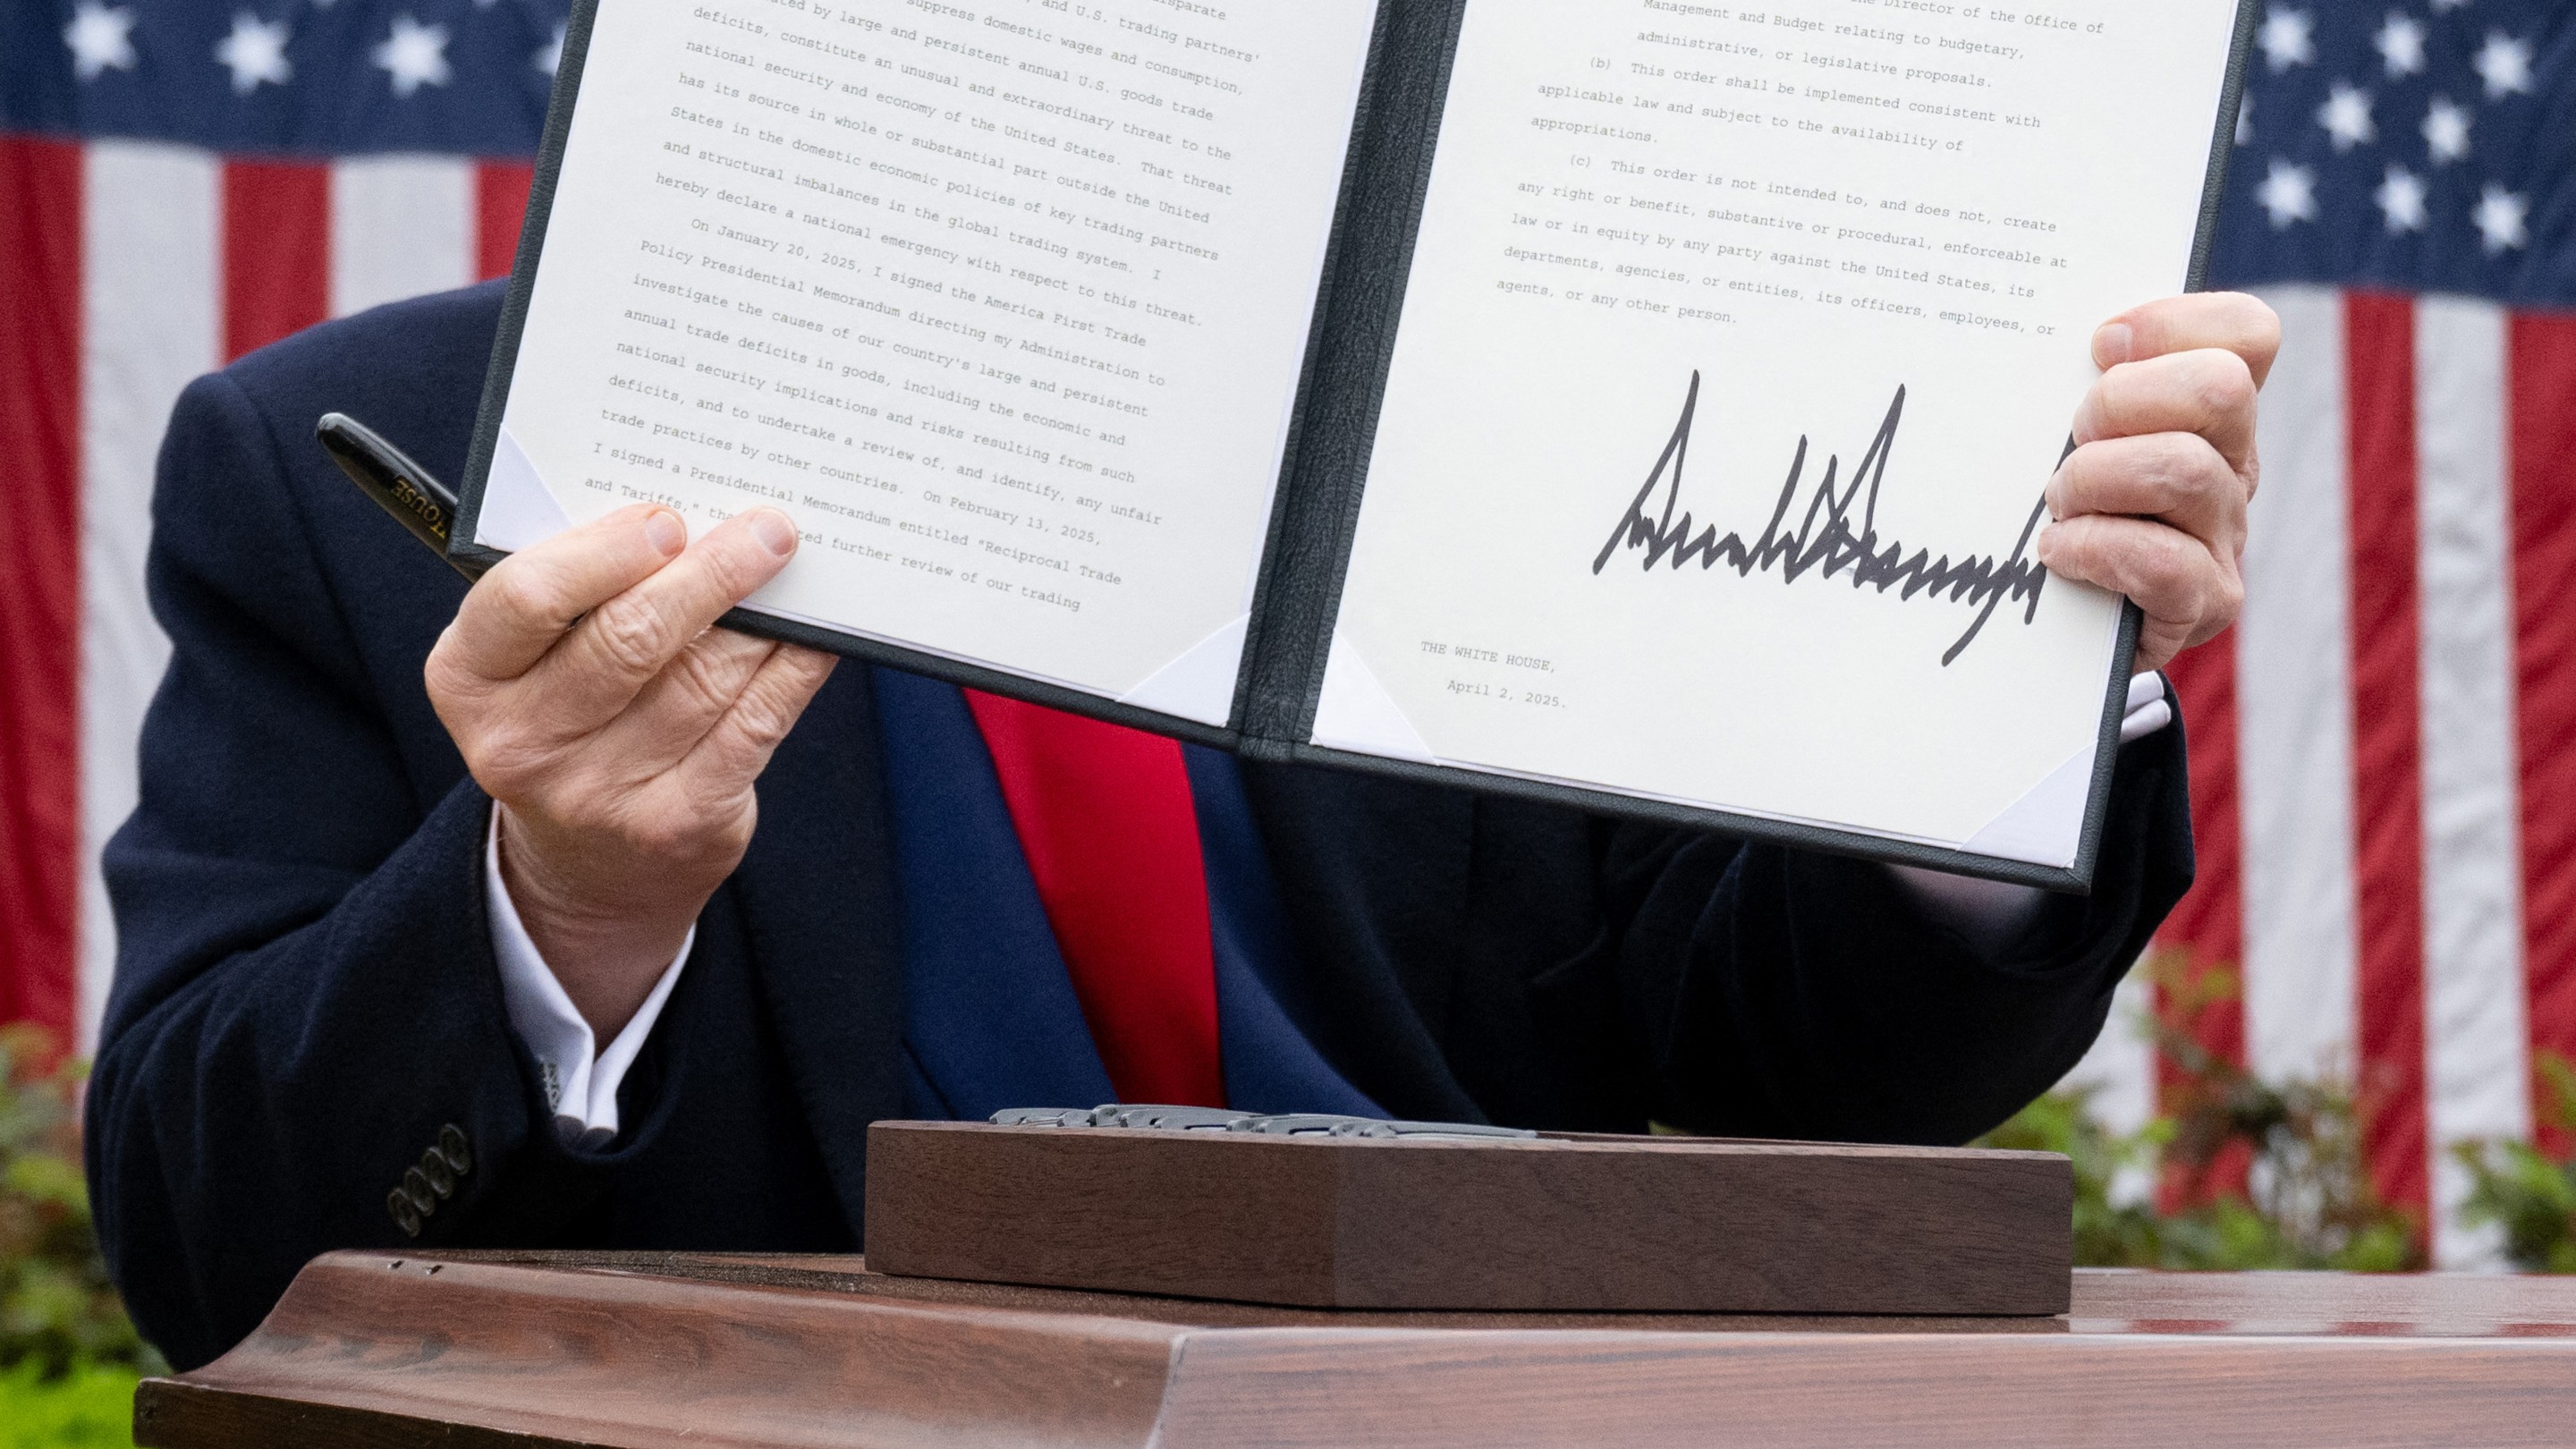 disparate
and U.S. trading partners'
suppress domestic wages and consumption,
by large and persistent annual U.S. goods trade
deficits, constitute an unusual and extraordinary threat to the
national security and economy of the United States. That threat
has its source in whole or substantial part outside the United
States in the domestic economic policies of key trading partners
and structural imbalances in the global trading system. I
hereby declare a national emergency with respect to this threat.
On January 20, 2025, I signed the America First Trade
Policy Presidential Memorandum directing my Administration to
investigate the causes of our country's large and persistent
annual trade deficits in goods, including the economic and
national security implications and risks resulting from such
deficits, and to undertake a review of, and identify, any unfair
trade practices by other countries. On February 13, 2025,
I signed a Presidential Memorandum entitled "Reciprocal Trade
and Tariffs," further review of our trading
Director of the Office of
Management and Budget relating to budgetary,
administrative, or legislative proposals.
(b) This order shall be implemented consistent with
applicable law and subject to the availability of
appropriations.
(c) This order is not intended to, and does not, create
any right or benefit, substantive or procedural, enforceable at
law or in equity by any party against the United States, its
departments, agencies, or entities, its officers, employees, or
agents, or any other person.
THE WHITE HOUSE,
April 2, 2025.
HOUSE